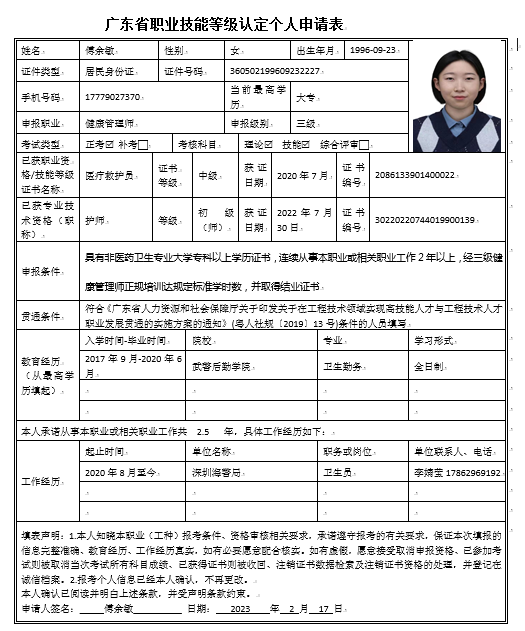 广东省职业技能等级认定个人申请表
姓名 傅余敏 性别 女 出生年月 1996-09-23
证件类型 居民身份证 证件号码 360502199609232227
手机号码 17779027370 当前最高学历 大专
申报职业 健康管理师 申报级别 三级
考试类型 正考☑ 补考□ 考核科目 理论☑ 技能☑ 综合评审□
已获职业资格/技能等级证书名称 医疗救护员 证书等级 中级 获证日期 2020年7月 证书编号 2086133901400022
已获专业技术资格（职称） 护师 等级 初级（师） 获证日期 2022年7月30日 证书编号 30220220744019900139
申报条件 具有非医药卫生专业大学专科以上学历证书，连续从事本职业或相关职业工作2年以上，经三级健
康管理师正规培训达规定标准学时数，并取得结业证书
贯通条件 符合《广东省人力资源和社会保障厅关于印发关于在工程技术领域实现高技能人才与工程技术人才
职业发展贯通的实施方案的通知》(粤人社规〔2019〕13号)条件的人员填写
教育经历（从最高学历填起） 入学时间-毕业时间 院校 专业 学习形式
2017年9月-2020年6月 武警后勤学院 卫生勤务 全日制
本人承诺从事本职业或相关职业工作共 2.5 年，具体工作经历如下：
工作经历 起止时间 单位名称 职务或岗位 单位联系人、电话
2020年8月至今 深圳海警局 卫生员 李婧莹 17862969192
填表声明：1.本人知晓本职业（工种）报考条件、资格审核相关要求，承诺遵守报考的有关要求，保证本次填报的
信息完整准确、教育经历、工作经历真实，如有必要愿意配合核实。如有虚假，愿意接受取消申报资格、已参加考
试则被取消当次考试所有科目成绩、已获得证书则被收回、注销证书数据检索及注销证书资格的处理，并登记在
诚信档案。2.报考个人信息已经本人确认，不再更改。
本人确认已阅读并明白上述条款，并受声明条款约束。
申请人签名： 傅余敏 日期： 2023 年 2 月 17 日